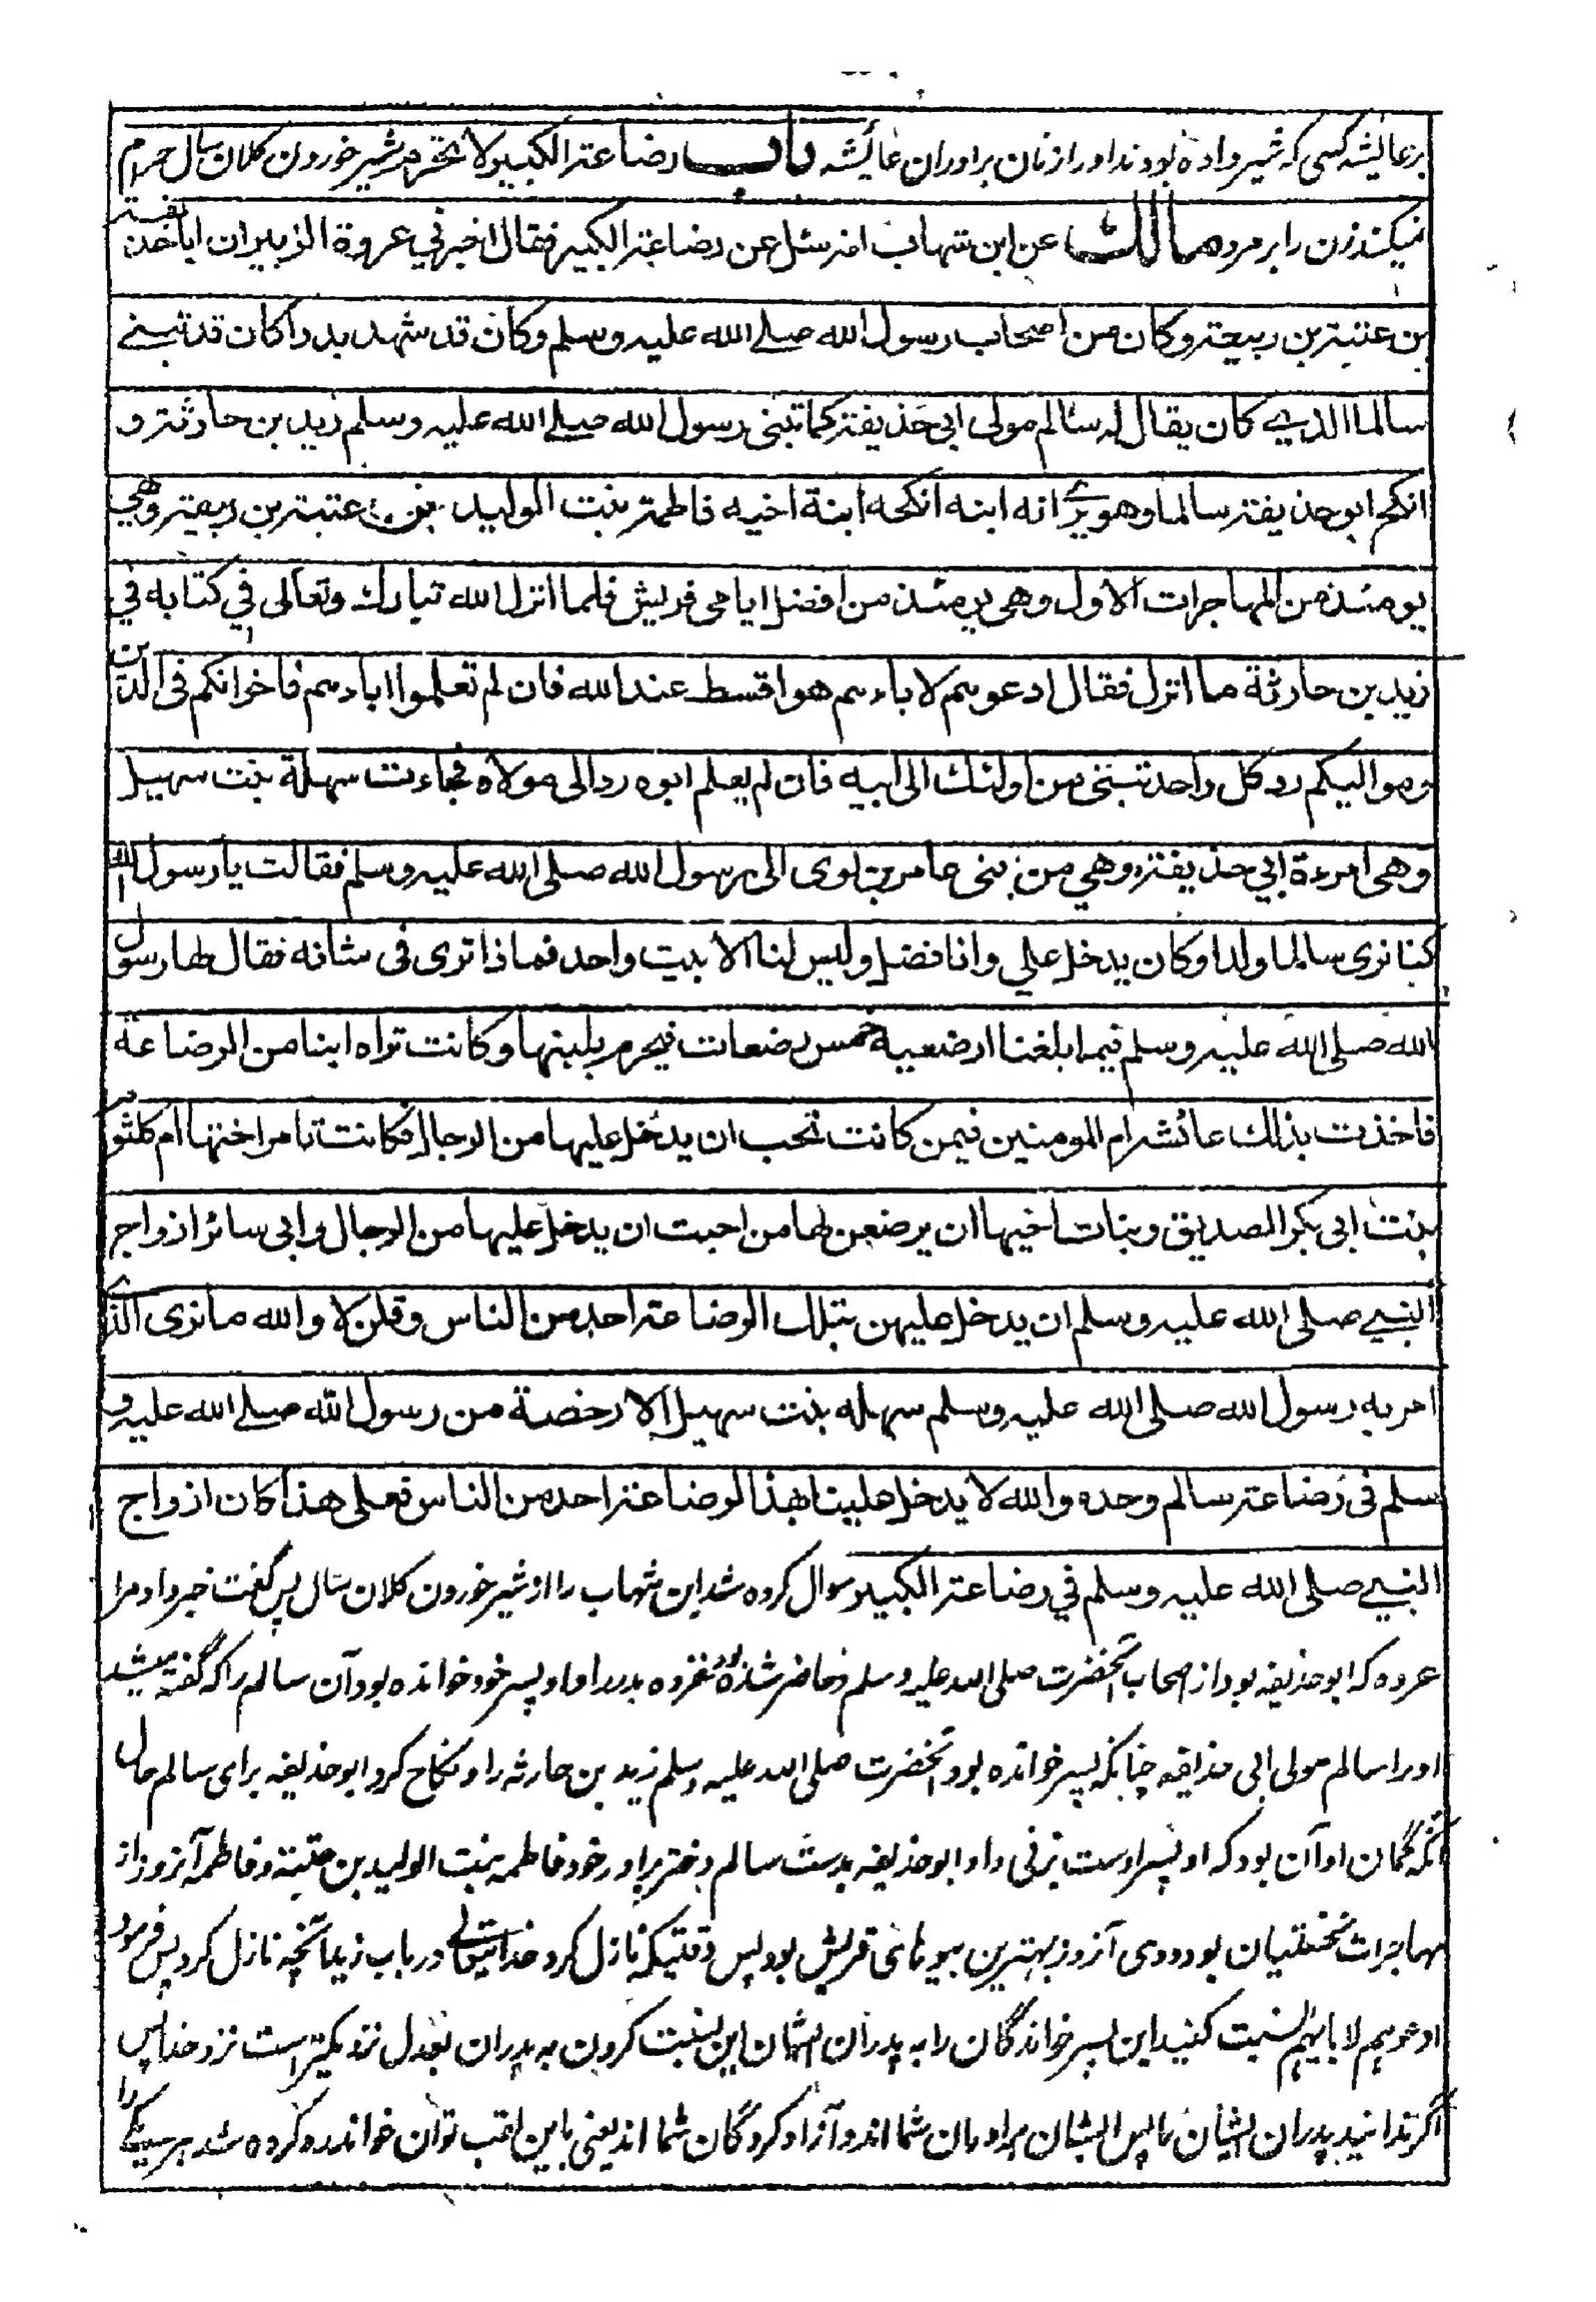 بر عائیشه کسی که شیر داده بودند او را زنان برادران عائشه باب رضاعة الکبیر لا تحرم شیر خوردن کلان سال حرام
نمیکند زن را بر مرد مالك عن ابن شهاب انه سئل عن رضاعة الکبیر فقال اخبرني عروة الزبیر ان ابا حذیفة
بن عتبة بن ربیعة وکان من اصحاب رسول الله صلے الله علیه وسلم وکان قد شهد بدرا کان قد تبنے
سالما الذیے کان یقال له سالم مولی ابی حذیفة کما تبنی رسول الله صلے الله علیه وسلم زید بن حارثة و
انکح ابو حذیفة سالما وهو یرے انه ابنه انکحه ابنة اخیه فاطمة بنت الولید بن عتبة بن ربیعة وهي
یومئذ من المهاجرات الاول وهی یومئذ من افضل ایامی قریش فلما انزل الله تبارك وتعالی في کتابه في
زید بن حارثة ما انزل فقال ادعوهم لاباءهم هو اقسط عند الله فان لم تعلموا اباءهم فاخوانکم فی الدین
وموالیکم رد کل واحد تبنی من اولئك الی ابیه فان لم یعلم ابوه رد الی مولاه فجاءت سهلة بنت سهیل
وهی امرءة ابي حذیفة وهي من بنی عامر بن لوی الی رسول الله صلی الله علیه وسلم فقالت یا رسول الله
کنا نری سالما ولدا وکان یدخل علي وانا فضل ولیس لنا الا بیت واحد فماذا تری فی شانه فقال لها رسول
الله صلی الله علیه وسلم فیما بلغنا ارضعیه خمس رضعات فیحرم بلبنها وکانت تراه ابنا من الرضاعة
فاخذت بذلك عائشة ام المومنین فیمن کانت تحب ان یدخل علیها من الرجال فکانت تامر اختها ام کلثوم
بنت ابی بکر الصدیق وبنات اخیها ان یرضعن لها من احبت ان یدخل علیها من الرجال وابی سائر ازواج
النبیے صلی الله علیه وسلم ان یدخل علیهن بتلك الرضاعة احد من الناس وقلن لا والله ما نری الذے
امر به رسول الله صلی الله علیه وسلم سهله بنت سهیل الا رخصة من رسول الله صلے الله علیه و
سلم فی رضاعة سالم وحده والله لا یدخل علینا بهذ الرضاعة احد من الناس فعلی هذا کان ازواج
النبیے صلی الله علیه وسلم في رضاعة الکبیر سوال کرده شد ابن شهاب را از شیر خوردن کلان سال پس گفت خبر داد مرا
عروه که ابو حذیفه بود از اصحاب آنحضرت صلی الله علیه وسلم و حاضر شده بود غزوه بدر را و او پسر خود خوانده بود آن سالم را که گفته میشد
او را سالم مولی ابی حذیفه چنانکه پسر خوانده بود آنحضرت صلی الله علیه وسلم زید بن حارثه را و نکاح کرد ابو حذیفه برای سالم حال
آنکه گمان او آن بود که او پسر اوست بزنی داد ابو حذیفه بدست سالم دختر برادر خود فاطمه بنت الولید بن عتبة و فاطمه آنروز از
مهاجرات نخستیان بود و وی آنروز بهترین بیوهائی قریش بود پس وقتیکه نازل کرد خدایتعالی در باب زید آنچه نازل کرد پس فرمود
ادعوهم لابائهم نسبت کنید این پسر خواندگان را به پدران ایشان این نسبت کردن به پدران بعدل نزدیکتر است نزد خدا پس
اگر ندانید پدران ایشان را پس ایشان برادران شما اند و آزاد کردگان شما اند یعنی باین لقب توان خواند رد کرده شد هر یکے را